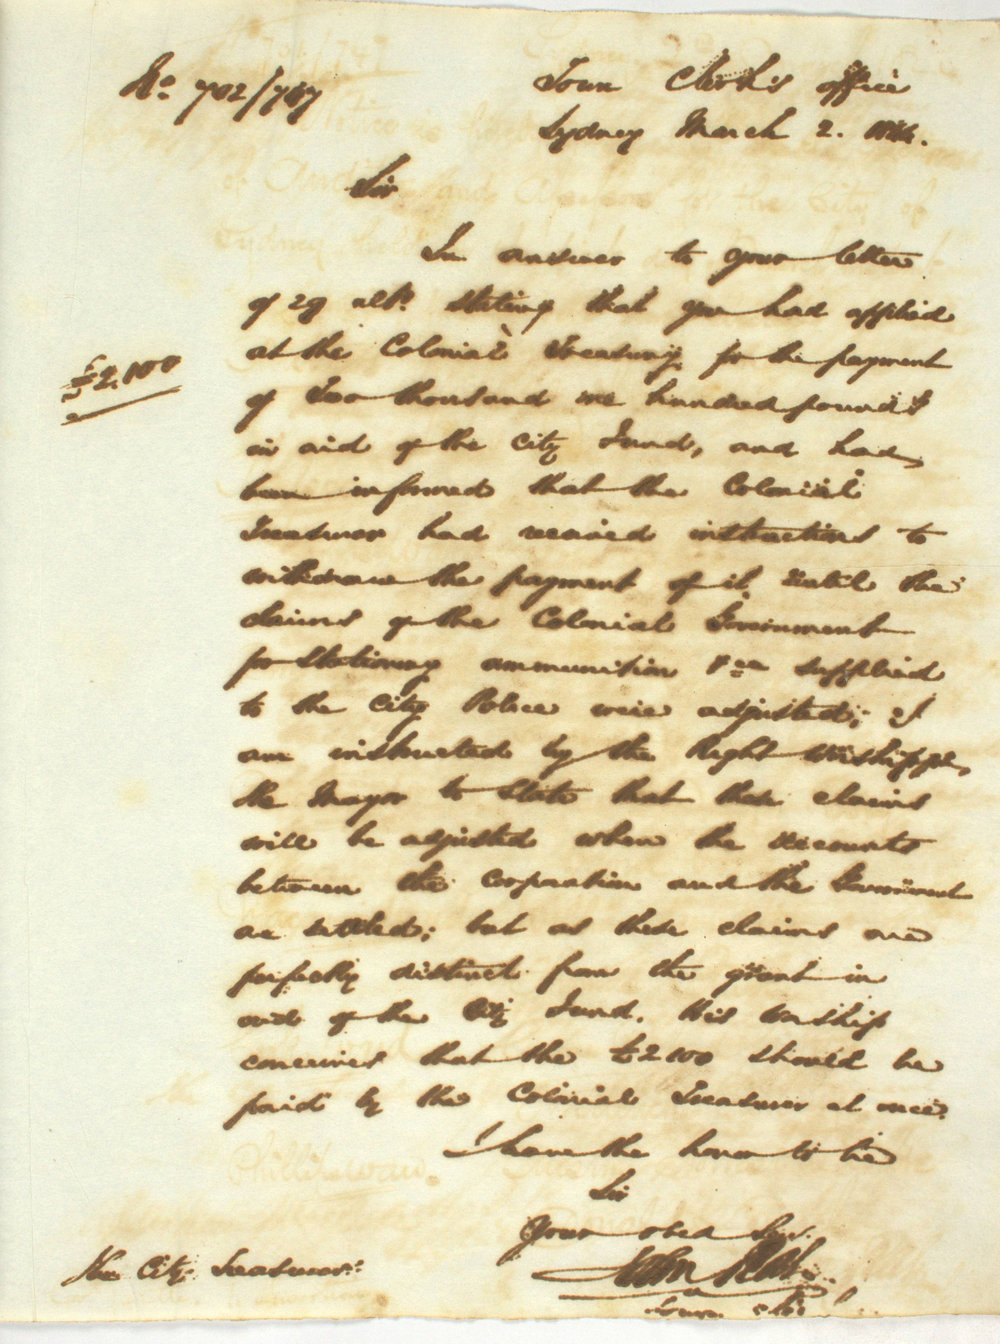 No 702/747
Town Clerk's office
Sydney March 2. 1844.
Sir
In answer to your letter
of 29 ulto. stating that you had applied
at the Colonial Treasury for the payment
£2.100
of Two thousand one hundred pounds
in aid of the City Fund, and had
been informed that the Colonial
Treasurer had received instructions to
withdraw the payment of it until the
claims of the Colonial Government
for stationery ammunition &ca supplied
to the City Police were adjusted; I
am instructed by the Right Worshipful
the Mayor to state that these claims
will be adjusted when the accounts
between the Corporation and the Government
are settled; but as these claims are
perfectly distinct from the grant in
aid of the City Fund. His Worship
conceives that the £2100 should be
paid by the Colonial Treasurer at once.
I have the honor to be
Sir
Your obed Ser.
John Rae
Town Clk
The City Treasurer